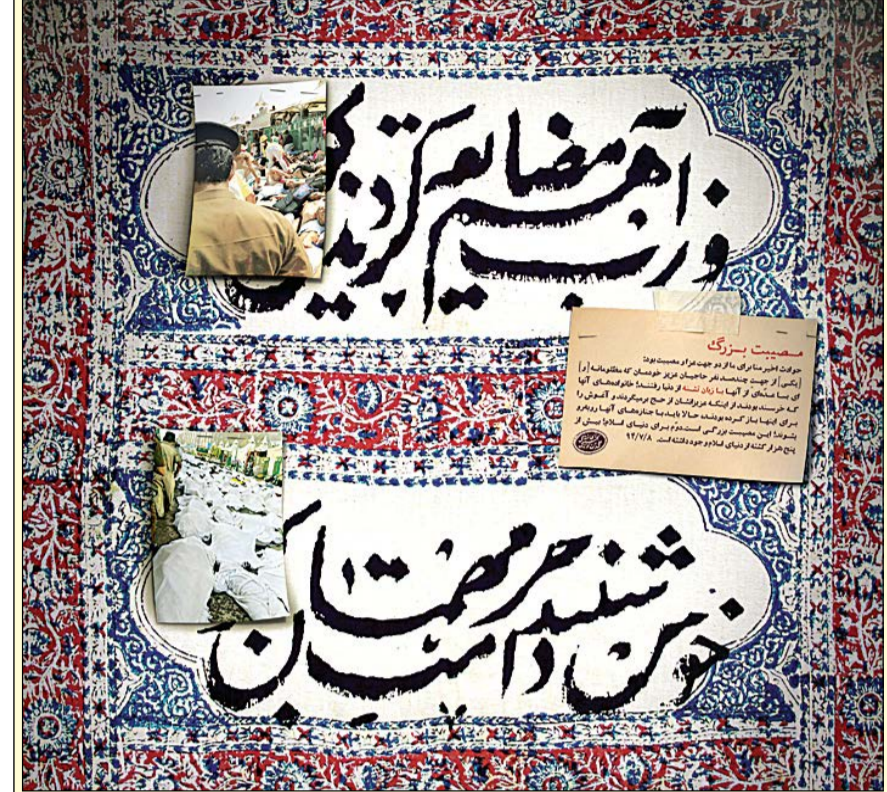 وز آب هم مضایقه کردند
مصیبت بزرگ
حوادث اخیر منا برای ما از دو جهت عزا و مصیبت بود:
[یکی] از جهت چندصد نفر حاجیان عزیز خودمان که مظلومانه [و]
ای بسا عده‌ای از آنها با زبان تشنه از دنیا رفتند؛ خانواده‌های آنها
که خرسند بودند از اینکه عزیزانشان از حج برمیگردند و آغوش را
برای اینها باز کرده بودند، حالا باید با جنازه‌های آنها روبه‌رو
بشوند؛ این مصیبت بزرگی است. دوّم برای دنیای اسلام؛ بیش از
پنج هزار کشته از دنیای اسلام وجود داشته است. ۹۴/۷/۸
خوش داشتند حرمت مهمان